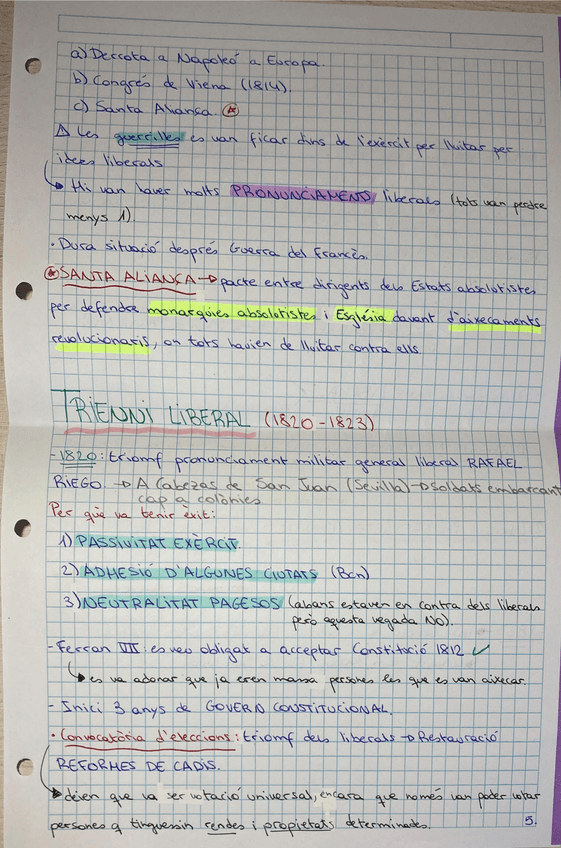 a) Derrota a Napoleó a Europa.
b) Congrés de Viena (1814).
c) Santa Aliança. *
Δ Les guerrilles es van ficar dins de l'exèrcit per lluitar per
idees liberals
↳ Hi van haver molts PRONUNCIAMENS liberals (tots van perdre
menys 1).
· Dura situació després Guerra del Francès.
* SANTA ALIANÇA → pacte entre dirigents dels Estats absolutistes
per defendre monarquies absolutistes i Església davant d'aixecaments
revolucionaris, on tots havien de lluitar contra ells.
TRIENNI LIBERAL (1820-1823)
- 1820: triomf pronunciament militar general liberal RAFAEL
RIEGO. → A Cabezas de San Juan (Sevilla) → soldats embarcant
cap a colònies
Per què va tenir èxit:
1) PASSIVITAT EXÈRCIT.
2) ADHESIÓ D'ALGUNES CIUTATS (Bcn)
3) NEUTRALITAT PAGESOS (abans estaven en contra dels liberals
però aquesta vegada NO).
- Ferran VII: es veu obligat a acceptar Constitució 1812 ✓
↳ es va adonar que ja eren massa persones les que es van aixecar.
- Inici 3 anys de GOVERN CONSTITUCIONAL.
· Convocatòria d'eleccions: triomf dels liberals → Restauració
REFORMES DE CADIS.
↳ deien que va ser votació universal, encara que només van poder votar
persones q tinguessin rendes i propietats determinades.
5.